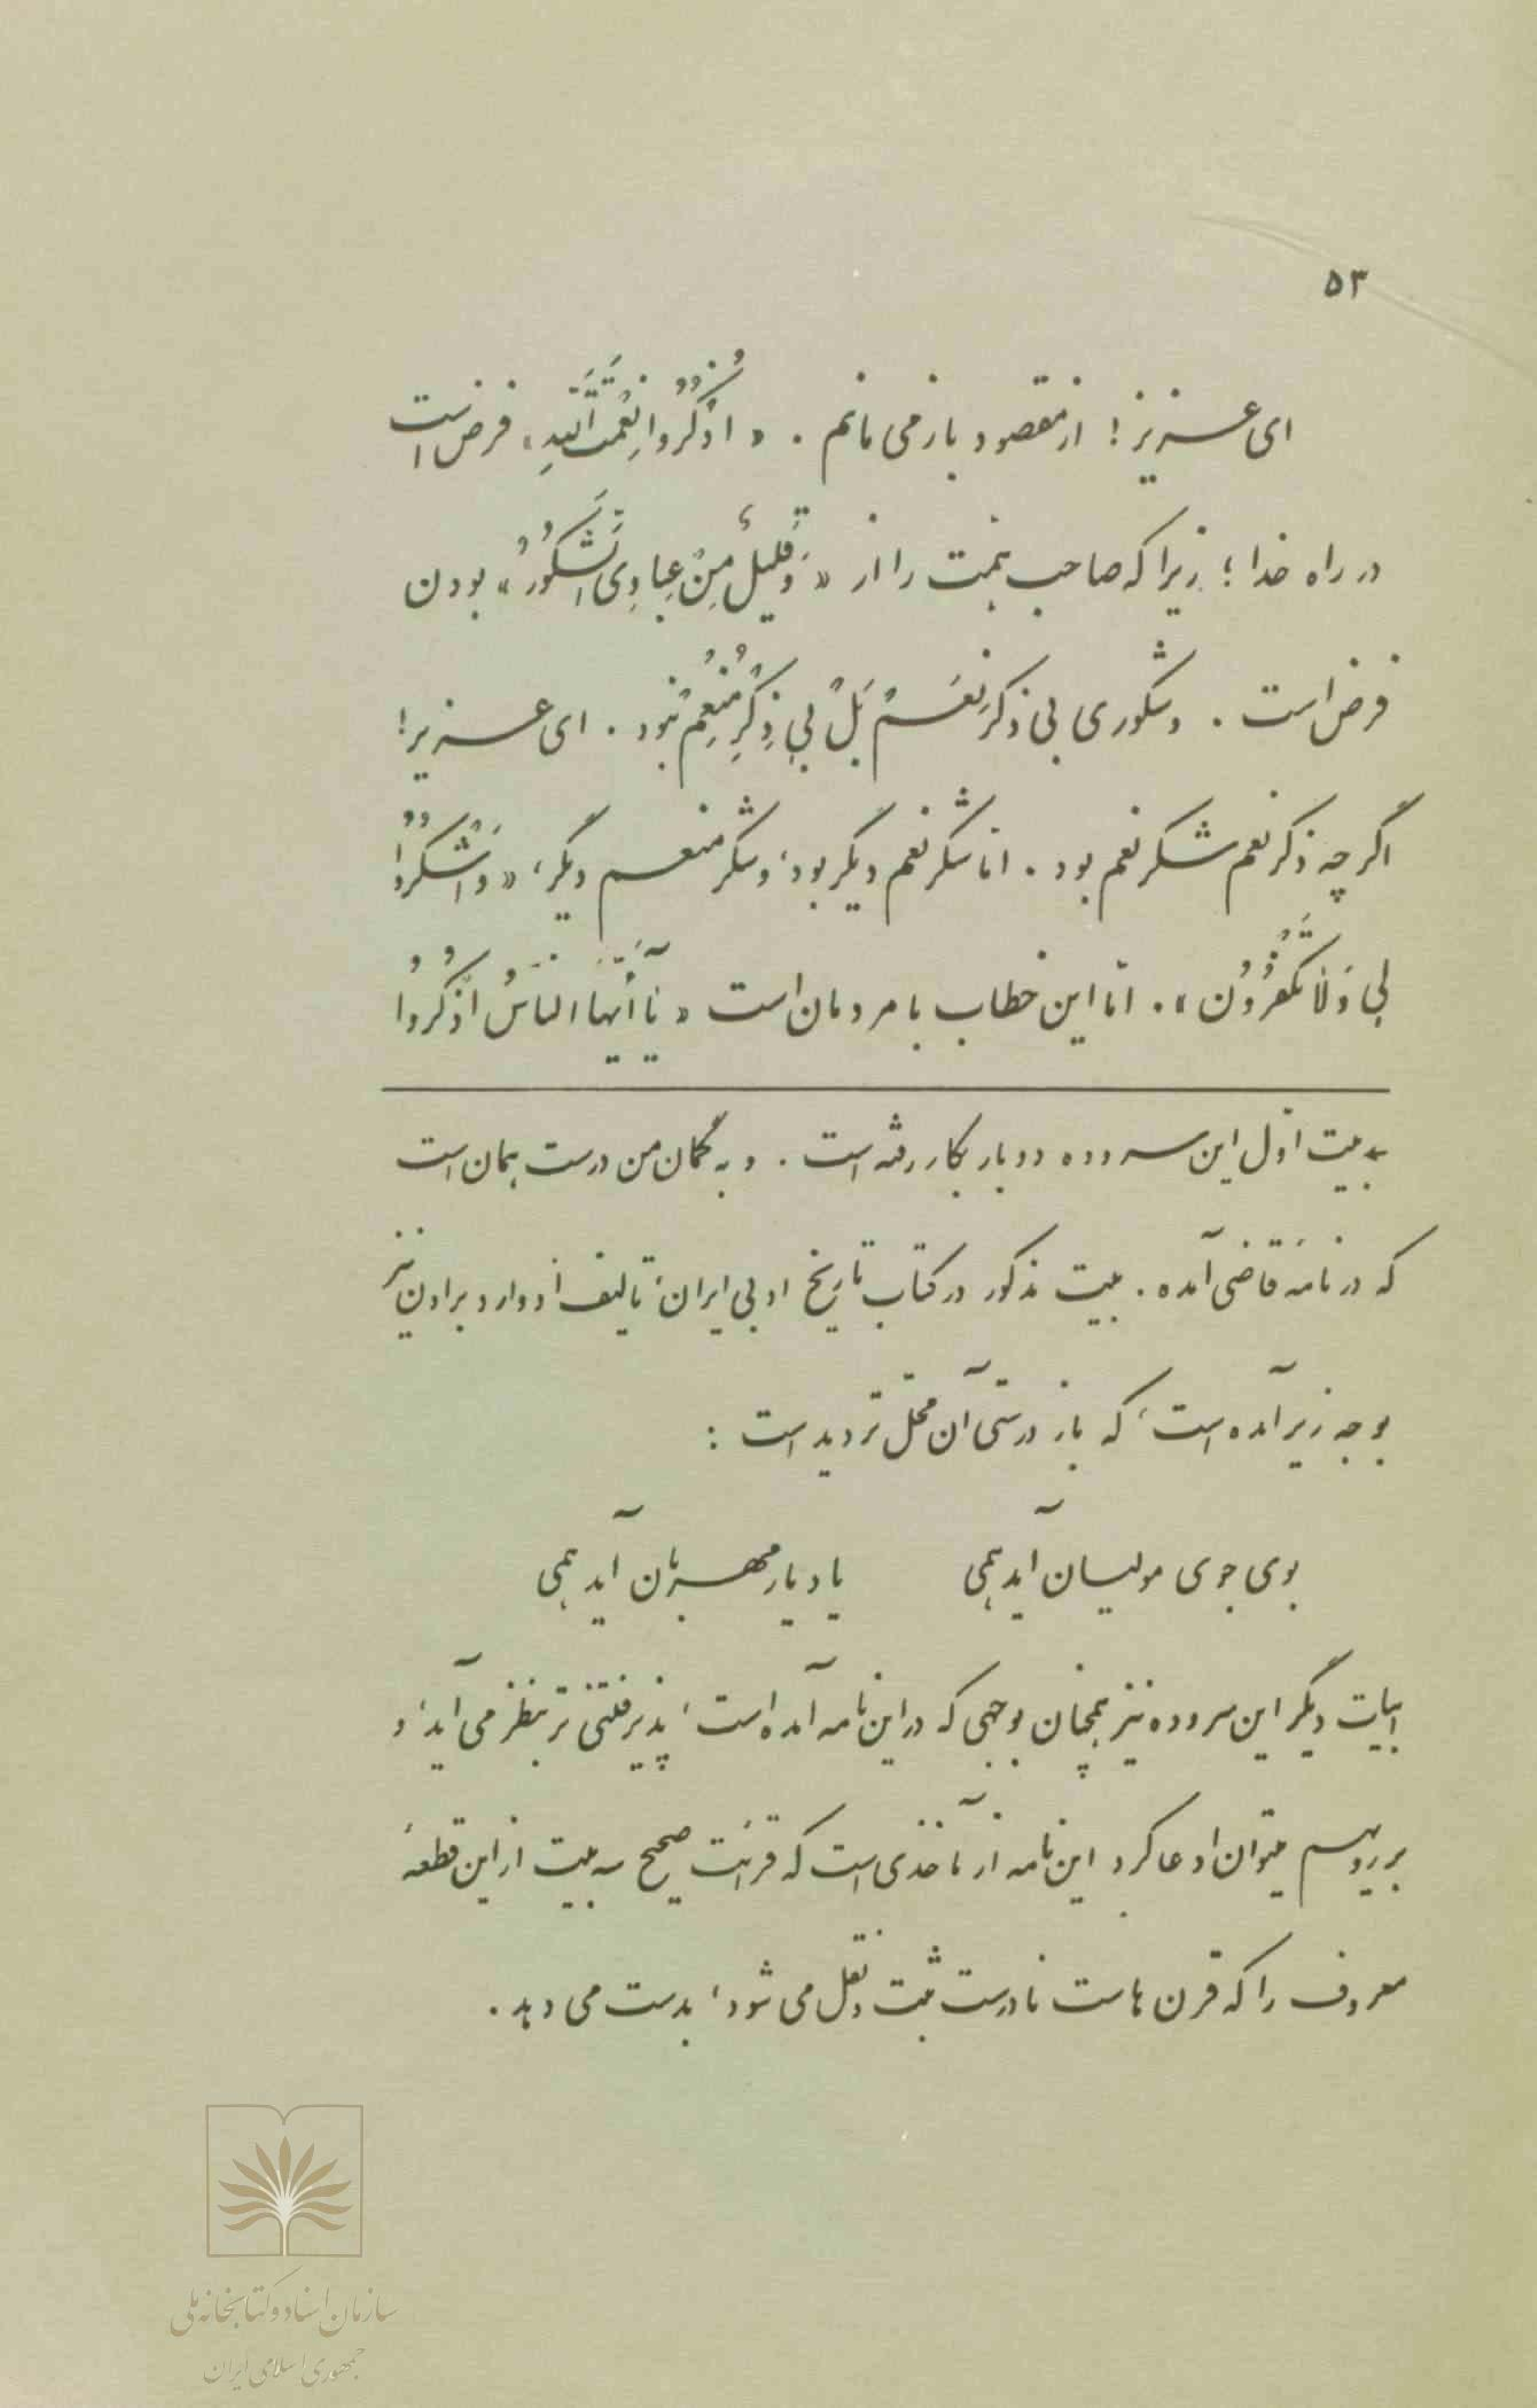 ۵۳
ای عزیز! از مقصود باز می مانم . « اُذْکُرُوا نِعْمَتَ اللّهِ » فرض است
در راه خدا ؛ زیرا که صاحب همت را از « وَ قَلِیلٌ مِنْ عِبادِیَ الشَّکُورُ » بودن
فرض است . و شکوری بی ذکرِ نِعَمْ بَلْ بِی ذِکْرِ مُنْعِمْ نبود . ای عزیز!
اگر چه ذکر نعم شکر نعم بود . امّا شکر نعم دیگر بود، و شکر منعم دیگر، « وَ اشْکُرُوا
لِی وَ لٰا تَکْفُرُونِ » . امّا این خطاب با مردمان است « یٰا أَیُّهَا النّاسُ اذْکُرُوا
بیت اوّل این سروده دوبار بکار رفته است . و به گمان من درست همان است
که در نامهٔ قاضی آمده . بیت مذکور در کتاب تاریخ ادبی ایران، تألیف ادوارد براون نیز
بوجه زیر آمده است، که باز درستی آن محلّ تردید است :
بوی جوی مولیان آید همی یاد یار مهربان آید همی
ابیات دیگر این سروده نیز همچنان بوجهی که در این نامه آمده است، پذیرفتنی تر بنظر می آید، و
بررویهم میتوان ادعا کرد این نامه از مآخذی است که قرائت صحیح سه بیت از این قطعهٔ
معروف را که قرن هاست نادرست ثبت و نقل می شود، بدست می دهد .
سازمان اسناد و کتابخانه ملی
جمهوری اسلامی ایران